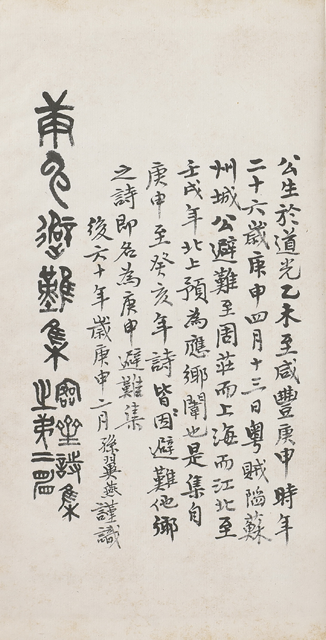 公生於道光乙未至咸豐庚申時年
二十六歲庚申四月十三日粤賊陷蘇
州城公避難至周莊而上海而江北至
壬戌年北上預為應鄉闈也是集自
庚申至癸亥年詩皆因避難他鄉
之詩即名為庚申避難集
後六十年歲庚申二月孫翼燕謹識
庚申避難集
愙齋詩集
之弟二